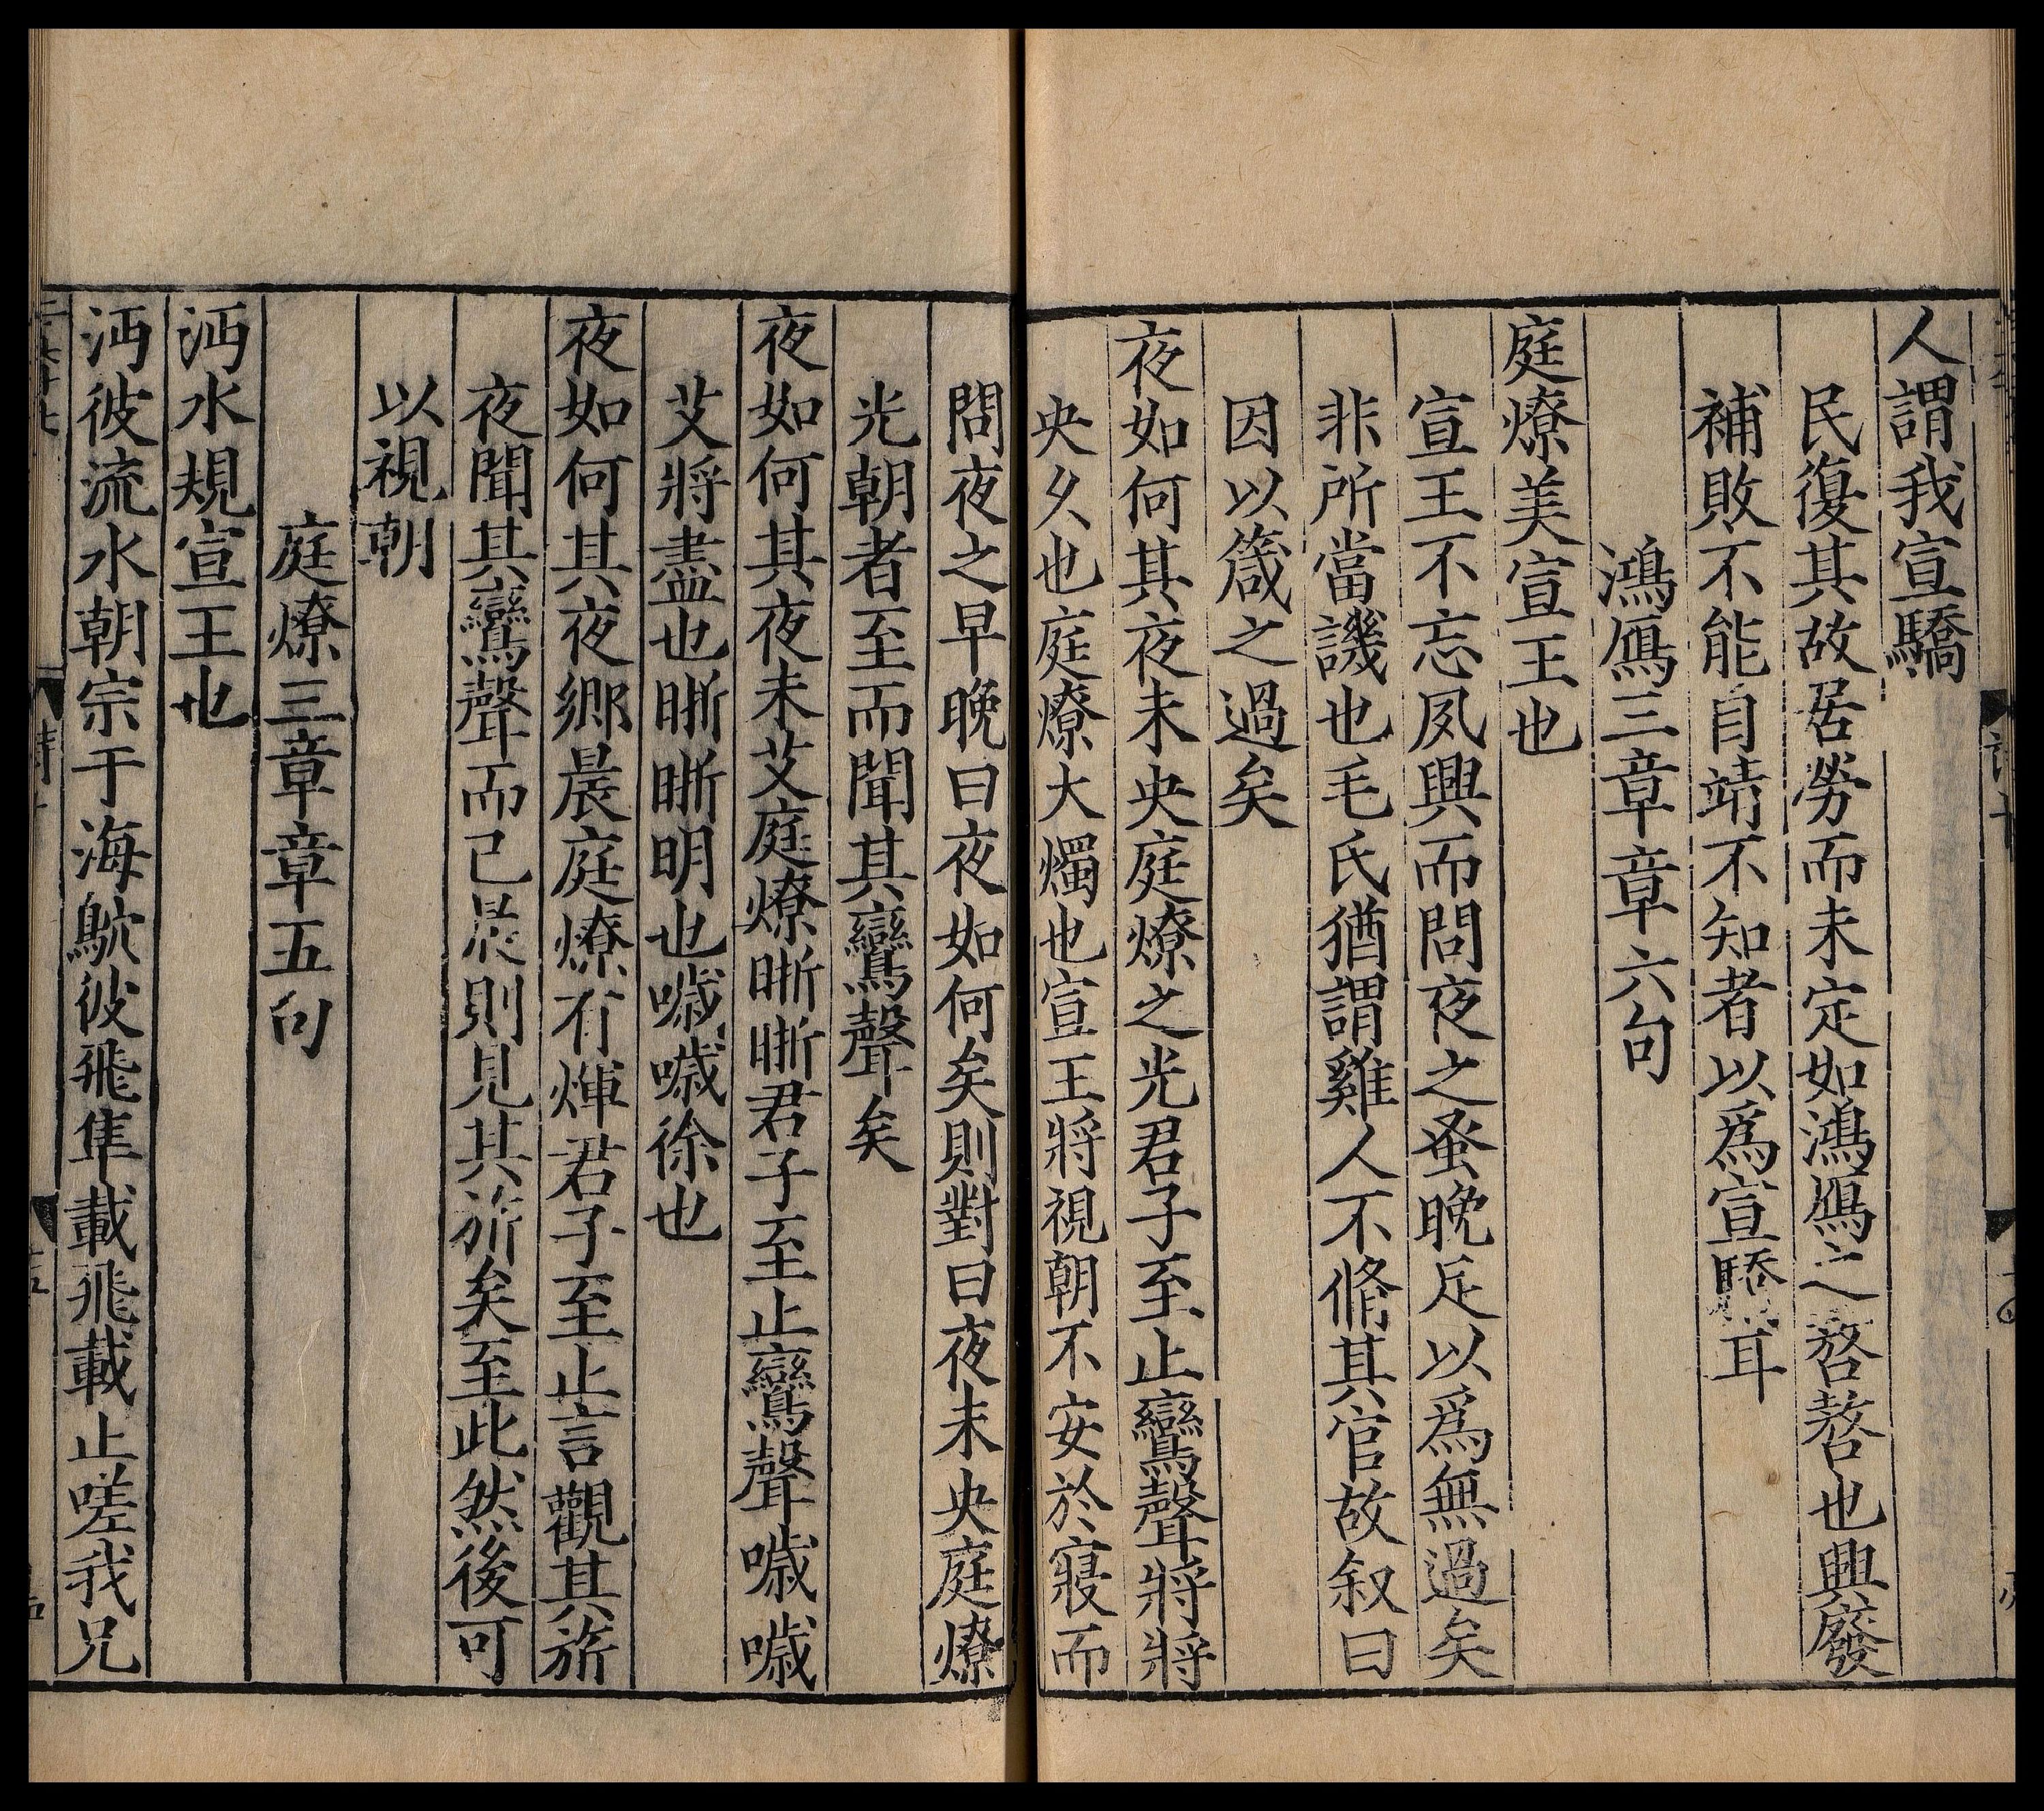 人謂我宣驕
民復其故居勞而未定如鴻鴈之嗸嗸也興廢
補敗不能自靖不知者以爲宣驕耳
鴻鴈三章章六句
庭燎美宣王也
宣王不忘夙興而問夜之蚤晚足以爲無過矣
非所當譏也毛氏猶謂雞人不脩其官故叙曰
因以箴之過矣
夜如何其夜未央庭燎之光君子至止鸞聲將將
央久也庭燎大燭也宣王將視朝不安於寢而
問夜之早晚曰夜如何矣則對曰夜未央庭燎
光朝者至而聞其鸞聲矣
夜如何其夜未艾庭燎晣晣君子至止鸞聲噦噦
艾將盡也晣晣明也噦噦徐也
夜如何其夜鄉晨庭燎有煇君子至止言觀其旂
夜聞其鸞聲而已晨則見其旂矣至此然後可
以視朝
庭燎三章章五句
沔水規宣王也
沔彼流水朝宗于海鴥彼飛隼載飛載止嗟我兄